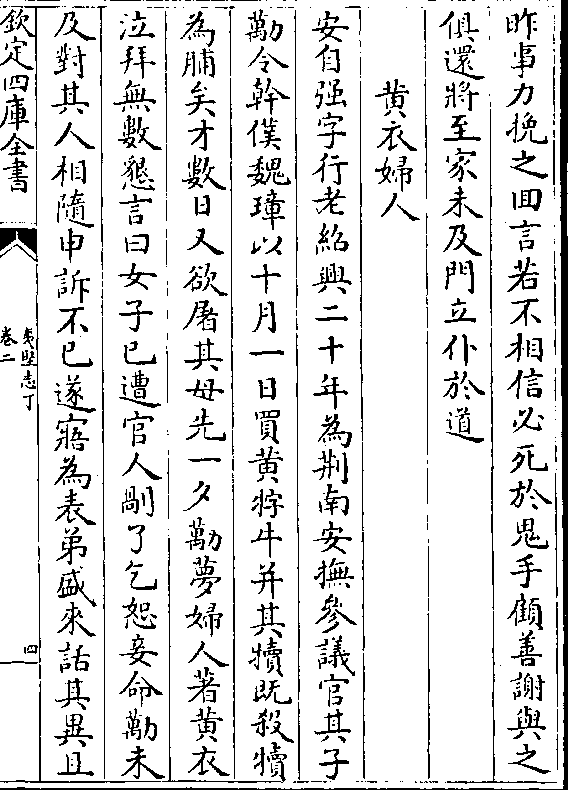 昨事力挽之囬言若不相信必死於鬼手顧善謝與之
俱還將至家未及門立仆於道
黄衣婦人
安自强字行老紹興二十年為荆南安撫參議官其子
勱令幹僕魏璋以十月一日買黄牸牛并其犢既殺犢
為脯矣才數日又欲屠其母先一夕勱夢婦人著黄衣
泣拜無數懇言曰女子已遭官人剮了乞恕妾命勱未
及對其人相隨申訴不已遂寤為表弟盛來話其異且
欽定四庫全書
夷堅志丁
卷二
四